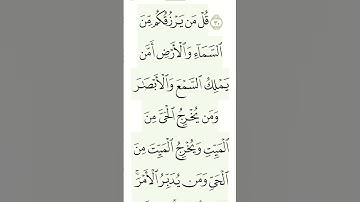 قُلْ مَن يَرْزُقُكُم مِّنَ
السَّمَآءِ وَالْأَرْضِ أَمَّن
يَمْلِكُ السَّمْعَ وَالْأَبْصَـٰرَ
وَمَن يُخْرِجُ الْحَىَّ مِنَ
الْمَيِّتِ وَيُخْرِجُ الْمَيِّتَ مِنَ
الْحَىِّ وَمَن يُدَبِّرُ الْأَمْرَ ۚ